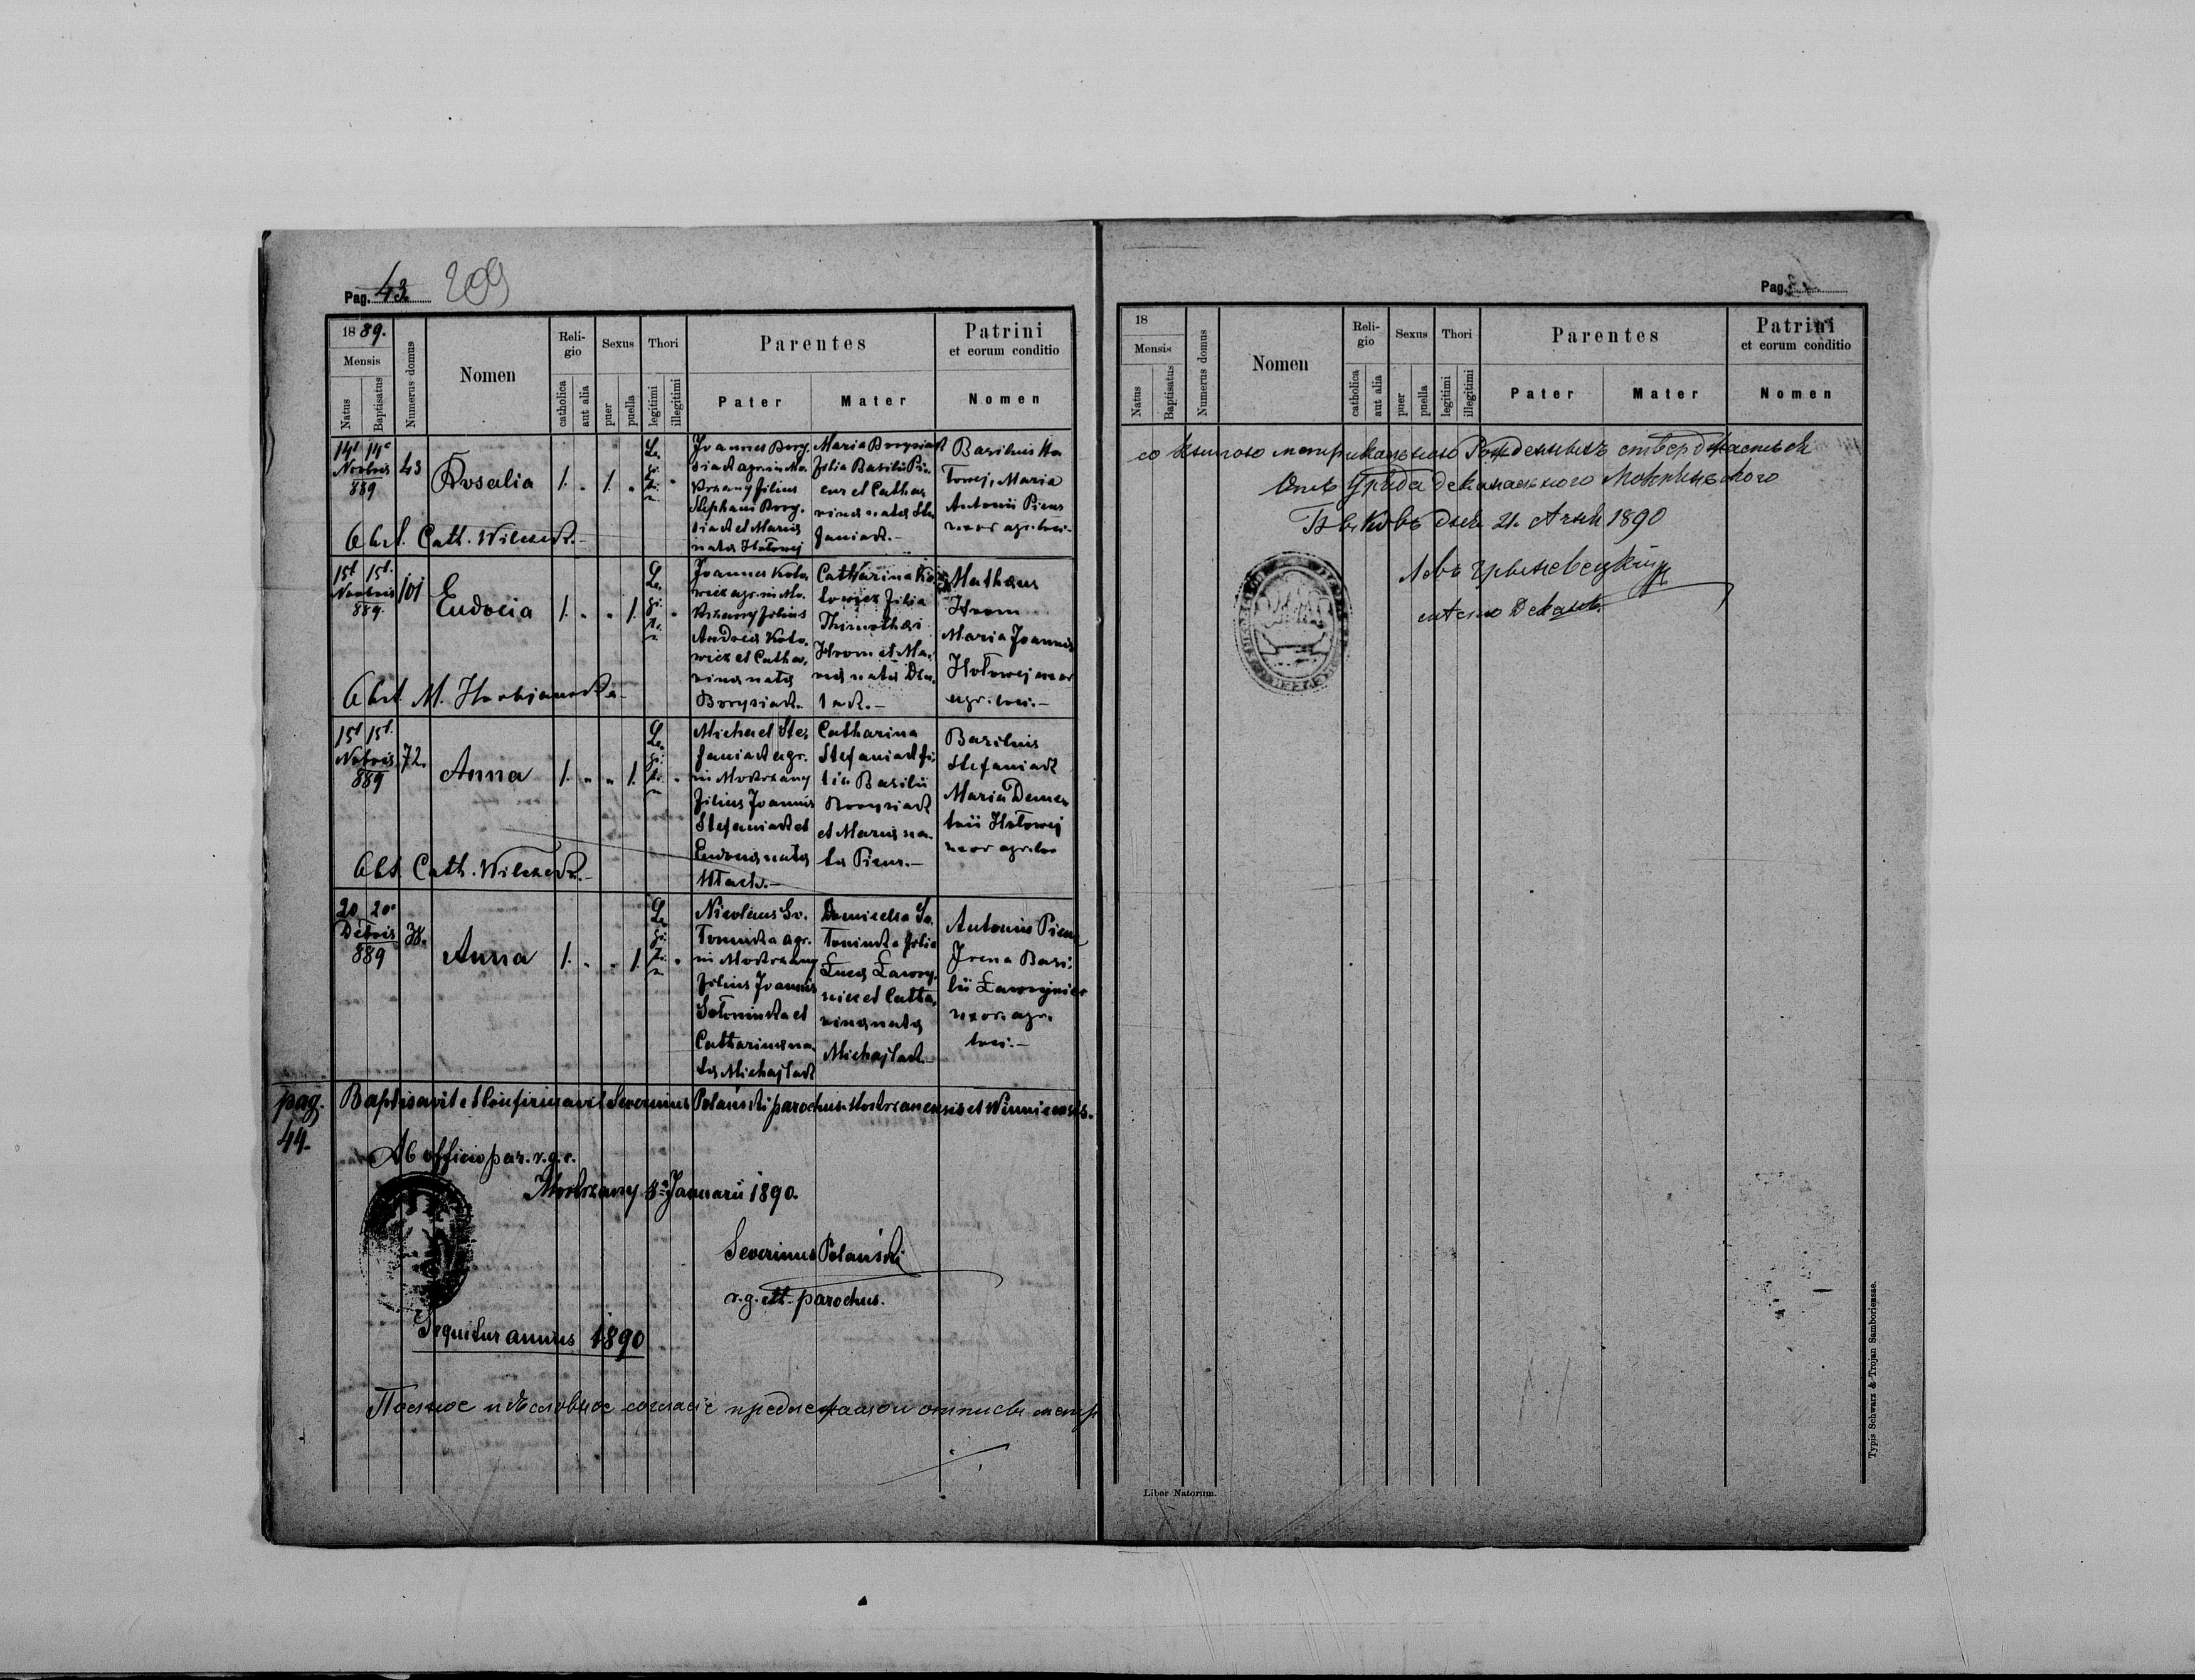 Pag. 43. 209
1889.
Mensis
Natus
Baptisatus
Numerus domus
Nomen
Reli-
gio
catholica
aut alia
Sexus
puer
puella
Thori
legitimi
illegitimi
Parentes
Pater
Mater
Patrini
et eorum conditio
Nomen
14t 14t
Novbris
889
43
Rosalia
1. „ 1. „
Le
gi
ti
mi
Joannes Bory-
siak agr. in Mo-
krzany filius
Stephani Bory-
siak et Maria
nata Hołowij
Maria Borysiak
filia Basilii Pie-
cus et Catha-
rina nata Ste-
faniak.-
Basilius Ho-
łowij, Maria
Antonii Piecus
uxor agr. loci.-
Obst. Cath. Wilczek.-
15t 15t
Novbris
889.
101
Eudocia
1. „ „ 1.
Le
gi
ti
mi
Joannes Koto-
wicz agr. in Mo-
krzany filius
Andrea Koto-
wicz et Catha-
rina nata
Borysiak.
Catharina Ko-
towicz filia
Thimothei
Hrom et Ma-
ria nata
Matheus
Hrom
Maria Joannis
Hołowij uxor
agr. loci.-
Obst. M.
15t 15t
Nobris
889
72.
Anna
1. „ „ 1.
Le
gi
ti
mi
Michael Ste-
faniak agr.
in Mokrzany
filius Joannis
Stefaniak et
Eudocia nata
Catharina
Stefaniak fi-
lia Basilii
Borysiak
et Maria na-
ta Piecus.-
Basilius
Stefaniak
Maria Deme-
trii Hołowij
uxor agr. loci
Obst. Cath. Wilczek.-
20 20
Decbris
889
38.
Anna
1. „ „ 1.
Le
gi
ti
mi
Nicolaus So-
łoninka agr.
in Mokrzany
filius Joannis
Sołoninka et
Catharina na-
ta Michajlak
So-
łoninka filia
Luca Ławry-
et Catha-
rina nata
Michajlak.-
Antonius Piecus
Irena Basi-
lii
uxor agr.
loci.-
pag.
44.
Baptisavit et Confirmavit Severinus Polański parochus Mokrzanensis et Winnicensis.
Ab officio par. r. g. c.
Mokrzany Januarii 1890.
Severinus Polański
r. g. cth. parochus.
Sequitur annus 1890
Полное и дѣсловное согласіе предлежащои отписи метр
Pag.
18
Mensis
Natus
Baptisatus
Numerus domus
Nomen
Reli-
gio
catholica
aut alia
Sexus
puer
puella
Thori
legitimi
illegitimi
Parentes
Pater
Mater
Patrini
et eorum conditio
Nomen
со книгою метрикальною Рожденныхъ стверджаєсь
Отъ Уряда деканального
дня 21. 1890
Левъ Гриневецкій
Деканъ.
Liber Natorum.
Typis Schwarz & Trojan Samboriensse.